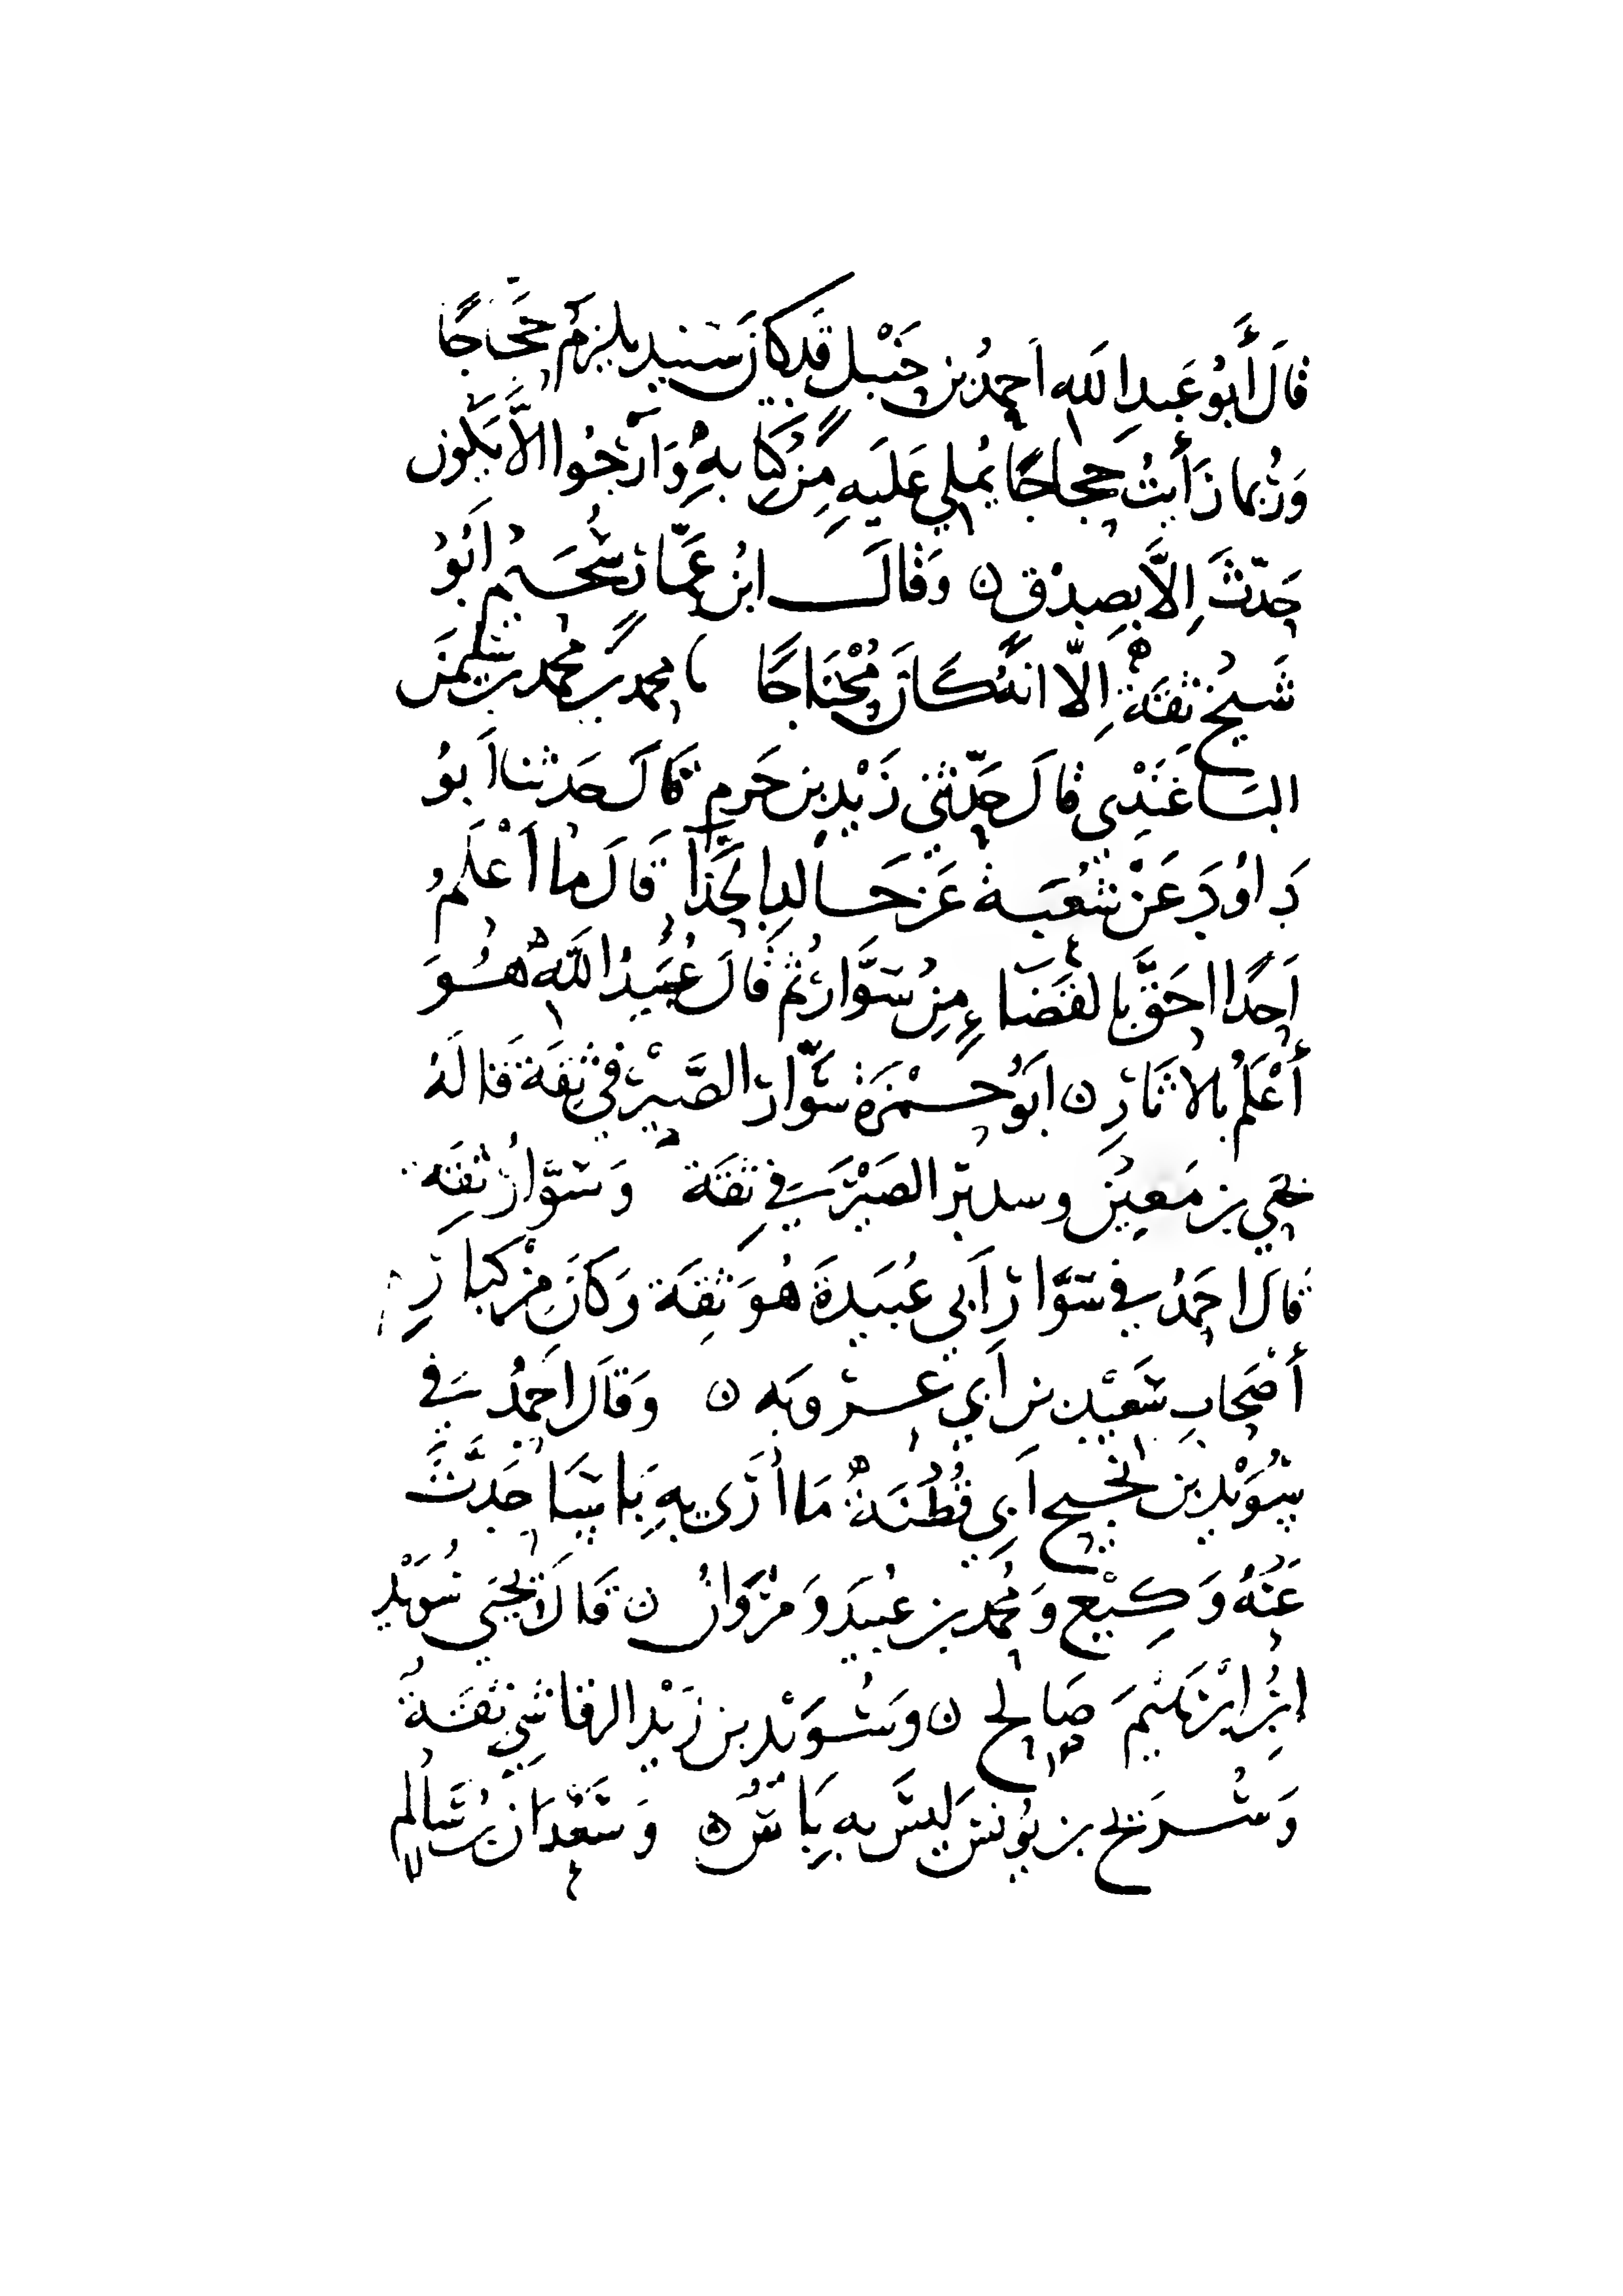 قَالَ أَبُو عَبدِ اللهِ احمدُ بن حَنْبل قَد كانَ سَنيد يلزمُ حَجَّاجًا
وَرُبما رَأيتُ حجاجًا يُملي عَلَيهِ مِنْ كِتَابهِ وَارْجُوا الَّا يَكون
حَدّثَ اِلَّا بِصِدْقٍ ن وَقَالَ ابنُ عَمَّارٍ سُحَيْم ابُو
شَيخ ثقَةٌ اِلّا انهُ كَانَ مُحْتَاجًا نا محمد بن محمد بن سليمن
الباغَنْدِي قالَ حَدّثني زَيْد بن حَزم قالَ حَدثنا ابوُ
دَاوُدَ عَنْ شُعْبَة عَن خَالدٍ الحَذا قَالَ ما اعْلَمُ
اَحَدًا احَقَّ بالقَضَاءِ مِنْ سَوَّارٍ ثُم قَالَ عُبَيدُ اللهِ هُوَ
أعْلَمُ بالاثَارِ ن ابُو حَمْزَة سَوَّار الصَّيْرفي ثِقَة قَالَهُ
يحيَي بن مَعِين وسديْر الصَيْرَفي ثِقَة وَسَوَّارٌ ثِقَة
قالَ احمَدُ في سَوَّار أَبي عُبَيدةَ هُوَ ثِقَة وَكَانَ مِنْ كِبارِ
أصْحابِ سَعيْد بن أبي عَرُوبَه ن وَقَالَ احمدُ في
سُوَيْد بن نجيح ابي قُطْنَةَ مَا ارَى بِهِ بَاسًا حَدَّثَ
عَنْهُ وَكِيْع وَمُحمد بن عُبيد وَمَرْوَانُ ن قَالَ يحيَي سُوَيْد
ابنُ ابْرَاهيْمَ صَالح ن وَسُوَيْد بن زَيْد الرقاشي ثقَةٌ
وَسُرَيْج بن يُونس لَيسَ بهِ بَاسٌ ن وَسَعْدَان بن سَالم